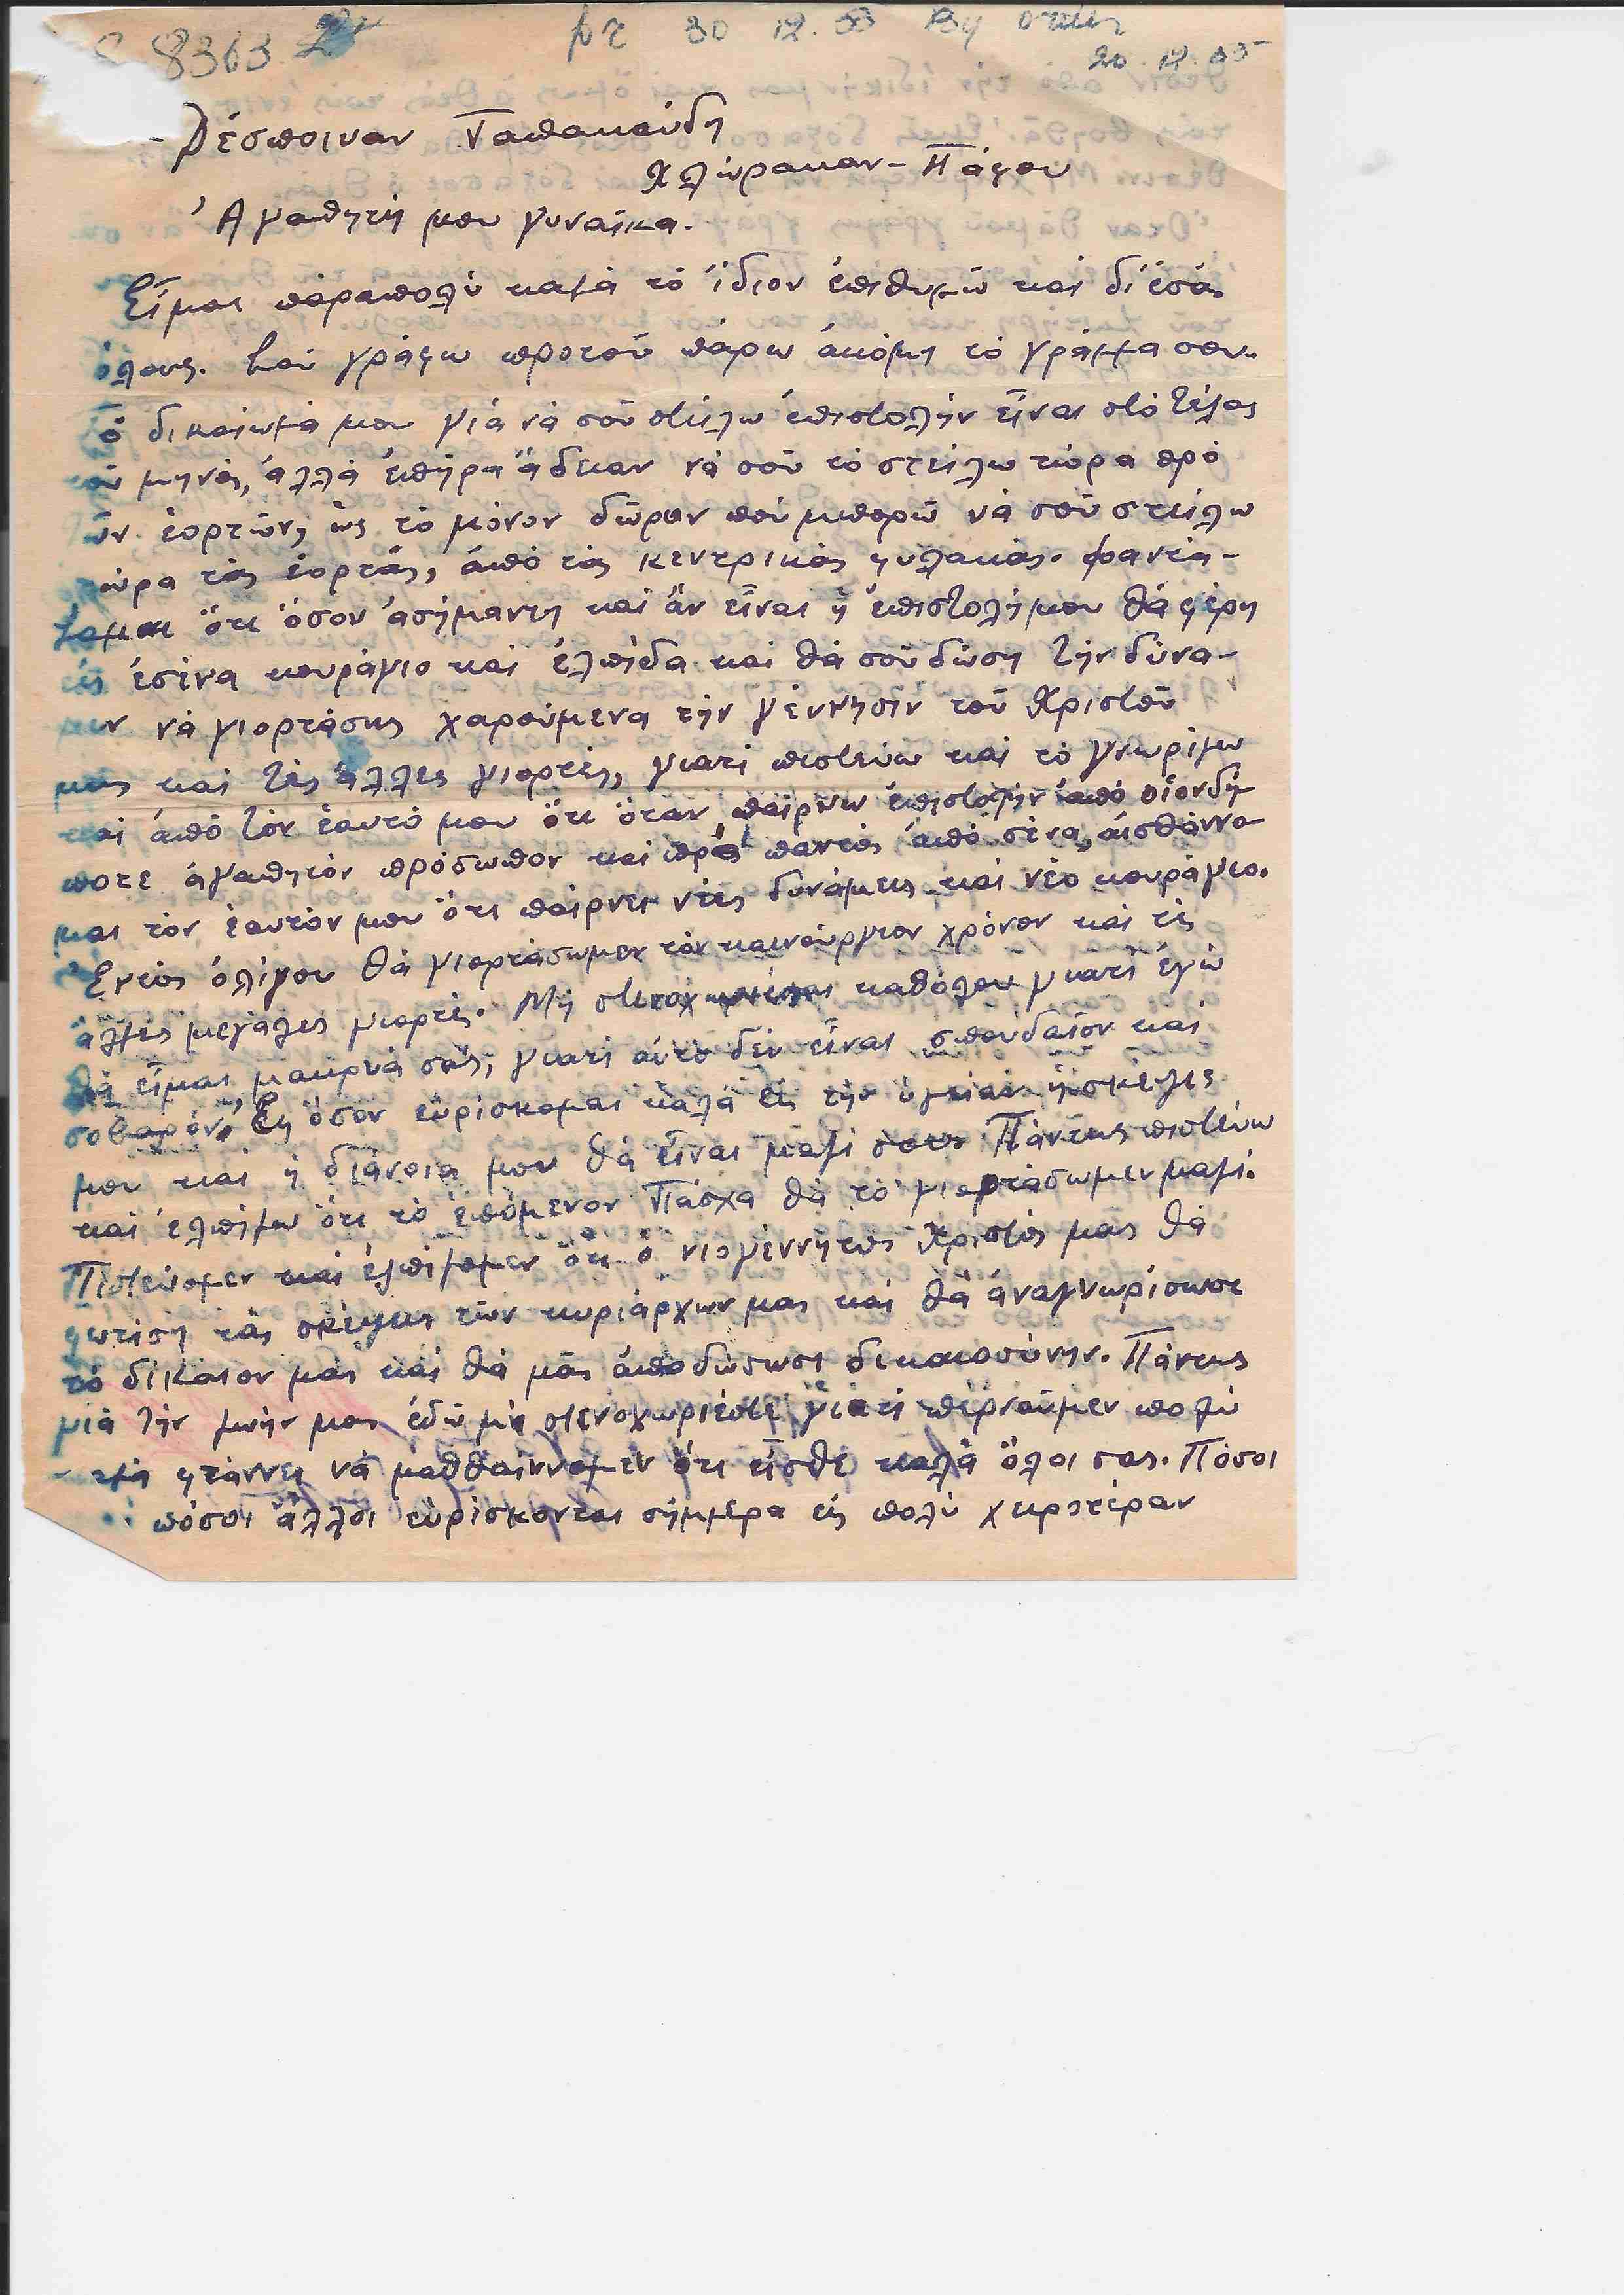 8363
30 12. 55 By
20. 12. 55
Δέσποιναν Ταπακούδη
Χλώρακαν - Πάφου
Ἀγαπητή μου γυναίκα.
Εἶμαι πάραπολύ καλά τό ἴδιον ἐπιθυμῶ καί δι' ἐσάς
ὅλους. Σου γράφω προτού πάρω ἀκόμη τό γράμμα σου.
Τό δικαίωμά μου γιά νά σοῦ στείλω ἐπιστολήν εἶναι στό τέλος
τοῦ μηνός, ἀλλά ἐπῆρα ἄδειαν νά σοῦ τό στείλω τώρα πρό
τῶν ἑορτῶν, ὡς τό μόνον δῶρον πού μπορῶ νά σοῦ στείλω
τώρα τάς ἑορτάς, ἀπό τάς κεντρικάς φυλακάς. Φαντά-
ζομαι ὅτι ὅσον ἀσήμαντη καί ἄν εἶναι ἡ ἐπιστολή μου θά φέρη
εἰς ἐσένα κουράγιο καί ἐλπίδα καί θά σοῦ δώση τήν δύνα-
μιν νά γιορτάσης χαρούμενα τήν γέννησιν τοῦ Χριστοῦ
μας καί τές ἄλλες γιορτές, γιατί πιστεύω καί τό γνωρίζω
καί ἀπό τόν ἑαυτό μου ὅτι ὅταν παίρνω ἐπιστολήν ἀπό οἱονδή-
ποτε ἀγαπητόν πρόσωπον καί πρό παντός ἀπό σένα, αἰσθάννο-
μαι τόν ἑαυτόν μου ὅτι παίρνει νέες δυνάμεις καί νέο κουράγιο.
Ἐντός ὀλίγου θά γιορτάσωμεν τόν καινούργιον χρόνον καί τές
ἄλλες μεγάλες γιορτές. Μή στενοχωριέσαι καθόλου γιατί ἐγώ
θά εἶμαι μακρυά σας, γιατί αὐτό δέν εἶναι σπουδαῖον καί
σοβαρόν, Ἐφ' ὅσον εὑρίσκομαι καλά εἰς τήν ὑγείαν ἡ σκέψις
μου καί ἡ διάνοια μου θά εἶναι μαζί σας. Πάντως πιστεύω
καί ἐλπίζω ὅτι τό ἑπόμενον Πάσχα θά τό γιορτάσωμεν μαζί.
Πιστεύομεν καί ἐλπίζομεν ὅτι ὁ νιογέννητος Χριστός μας θά
φωτίση τάς σκέψεις τῶν κυριάρχων μας καί θά ἀναγνωρίσωσι
τό δίκαιον μας καί θά μᾶς ἀποδώσωσι δικαιοσύνην. Πάντως
γιά τήν ζωήν μας ἐδῶ μή στενοχωριέστε γιατί περνοῦμεν πολύ
καλά φτάννει νά μαθθαίννομεν ὅτι εἶσθε καλά ὅλοι σας. Πόσοι
πόσοι ἄλλοι εὑρίσκονται σήμμερα εἰς πολύ χειροτέραν